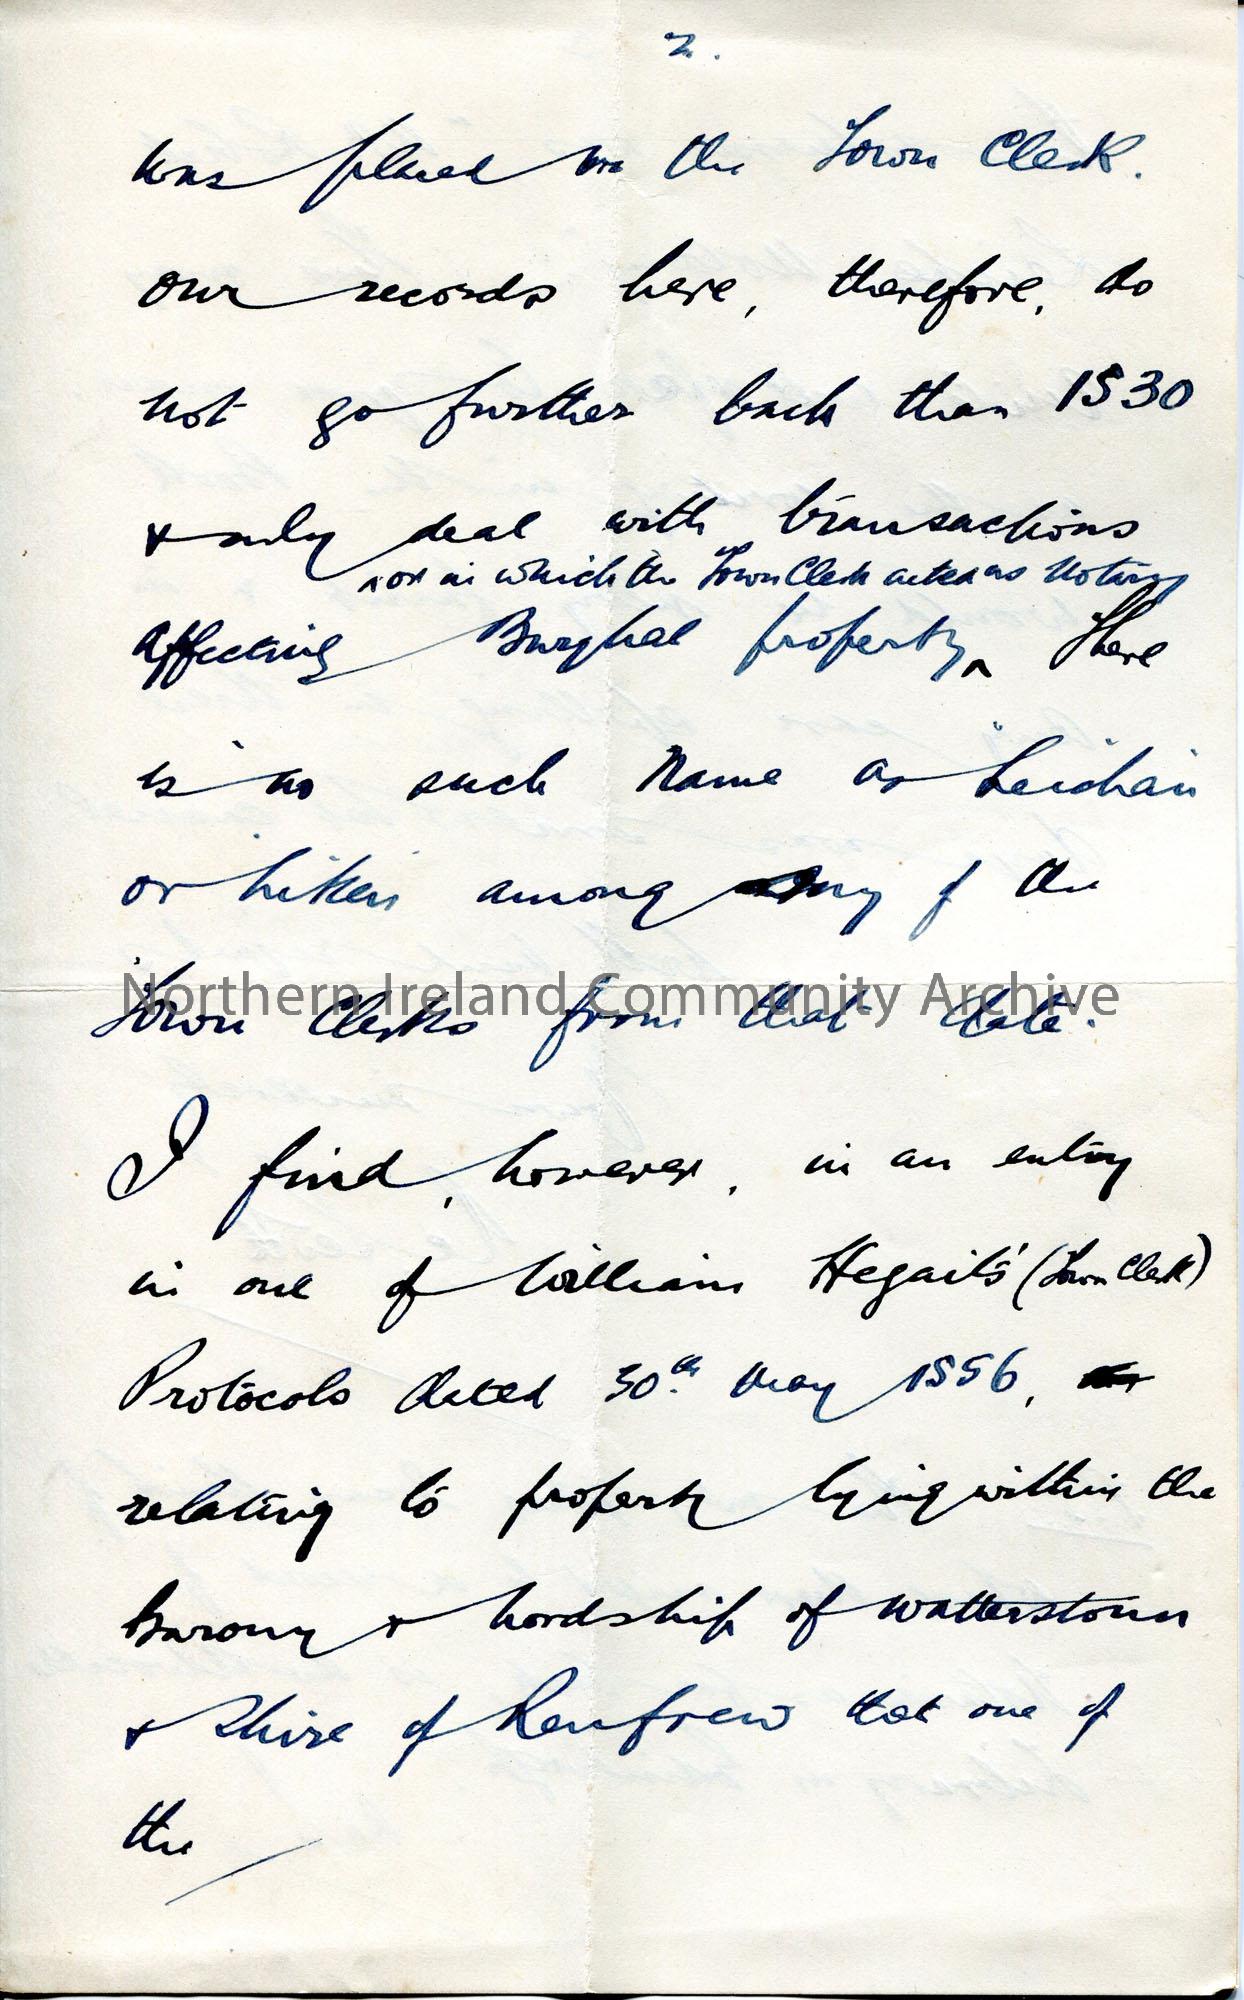 2.
was placed on the Town Clerk.
Our records here, therefore, do
not go further back than 1530
& only deal with transactions
or in which the Town Clerk acted as Notary
affecting Burghal property ^ There
is no such Name as "Leichair
or Litken among any of the
Town Clerks from that date.
Northern Ireland Community Archive
I find, however, in an entry
in one of William Hegait's (Town Clerk)
Protocols dated 30th May 1556,
relating to property lying within the
Barony & Lordship of Watterstoun
& Shire of Renfrew that one of
the